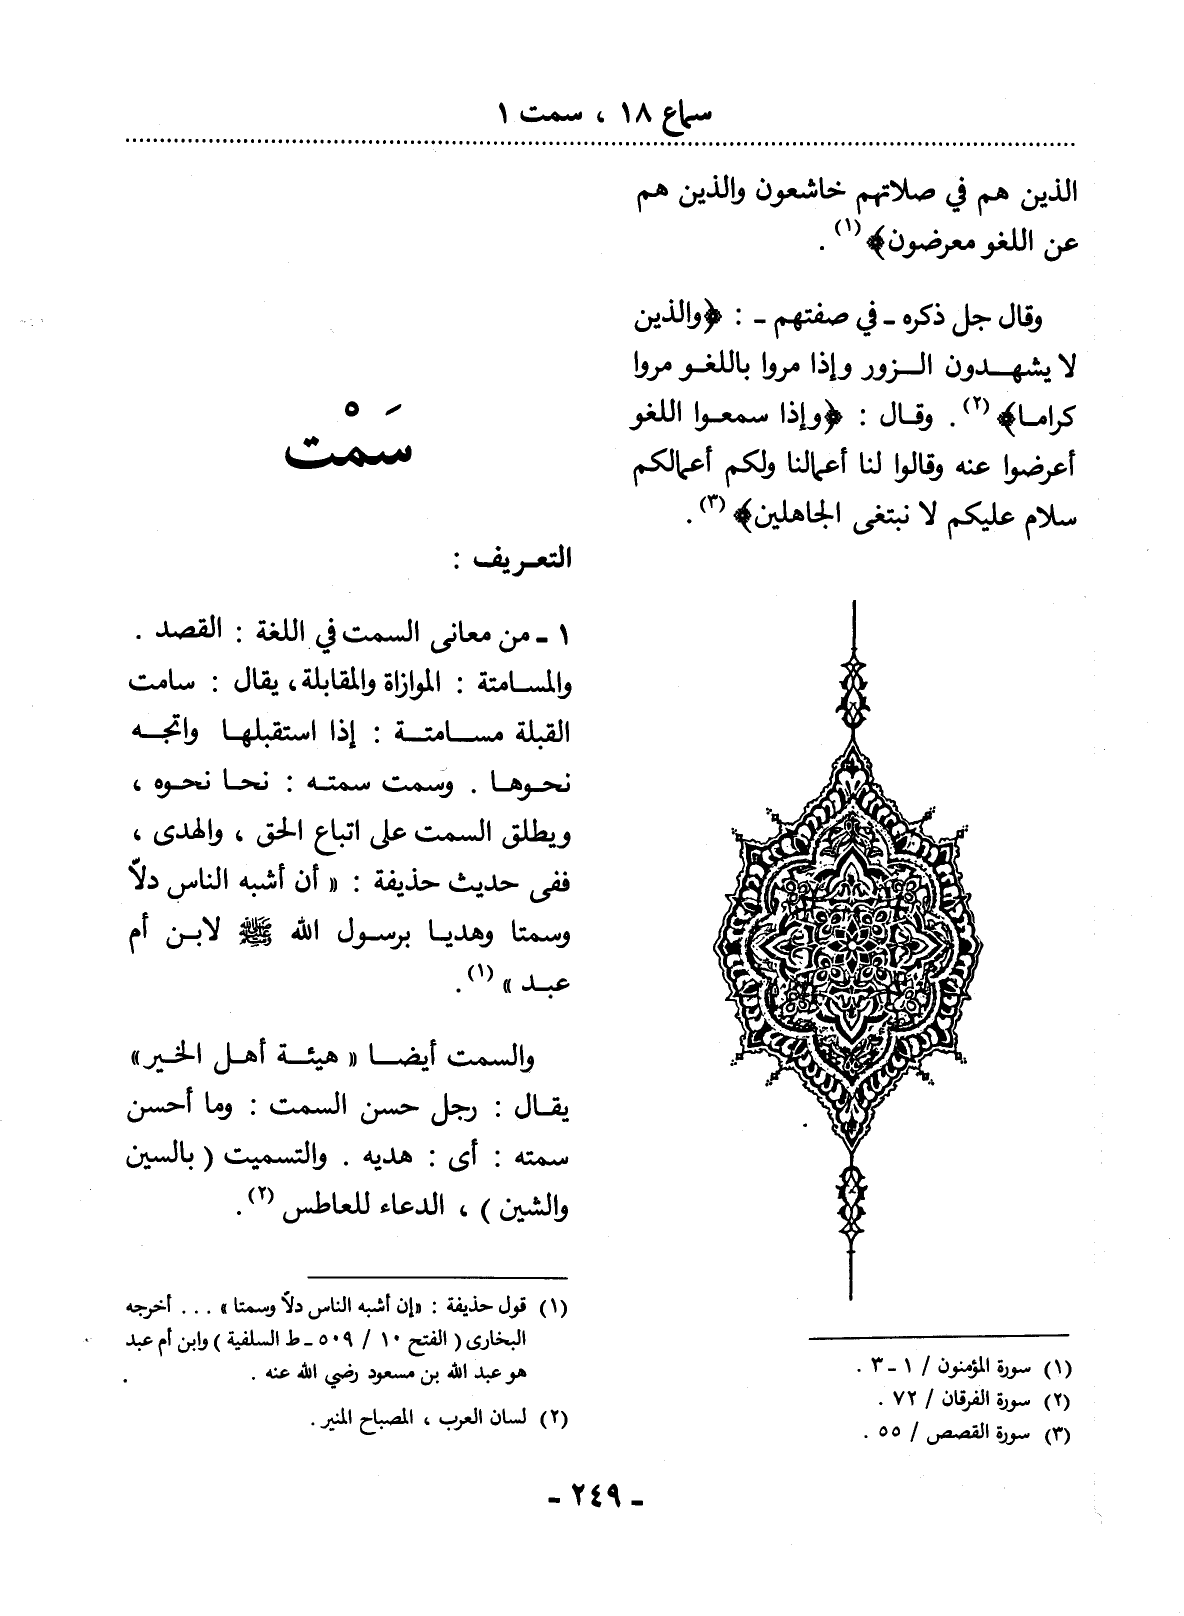 سماع ١٨ ، سمت ١
الذين هم في صلاتهم خاشعون والذين هم
عن اللغو معرضون﴾ (١) .
وقال جل ذكره ـ في صفتهم ـ : ﴿والذين
لا يشهدون الزور وإذا مروا باللغو مروا
كراما﴾ (٢) . وقال : ﴿وإذا سمعوا اللغو
أعرضوا عنه وقالوا لنا أعمالنا ولكم أعمالكم
سلام عليكم لا نبتغى الجاهلين﴾ (٣) .
(١) سورة المؤمنون / ١ ـ ٣ .
(٢) سورة الفرقان / ٧٢ .
(٣) سورة القصص / ٥٥ .
سَمْت
التعريف :
١ ـ من معانى السمت في اللغة : القصد .
والمسامتة : الموازاة والمقابلة ، يقال : سامت
القبلة مسامتة : إذا استقبلها واتجه
نحوها . وسمت سمته : نحا نحوه ،
ويطلق السمت على اتباع الحق ، والهدى ،
ففى حديث حذيفة : « أن أشبه الناس دلاّ
وسمتا وهديا برسول الله ﷺ لابن أم
عبد » (١) .
والسمت أيضا « هيئة أهل الخير »
يقال : رجل حسن السمت : وما أحسن
سمته : أى : هديه . والتسميت ( بالسين
والشين ) ، الدعاء للعاطس (٢) .
(١) قول حذيفة : «إن أشبه الناس دلاّ وسمتا » . . . أخرجه
البخارى ( الفتح ١٠ / ٥٠٩ ـ ط السلفية ) وابن أم عبد
هو عبد الله بن مسعود رضي الله عنه .
(٢) لسان العرب ، المصباح المنير .
ـ ٢٤٩ ـ